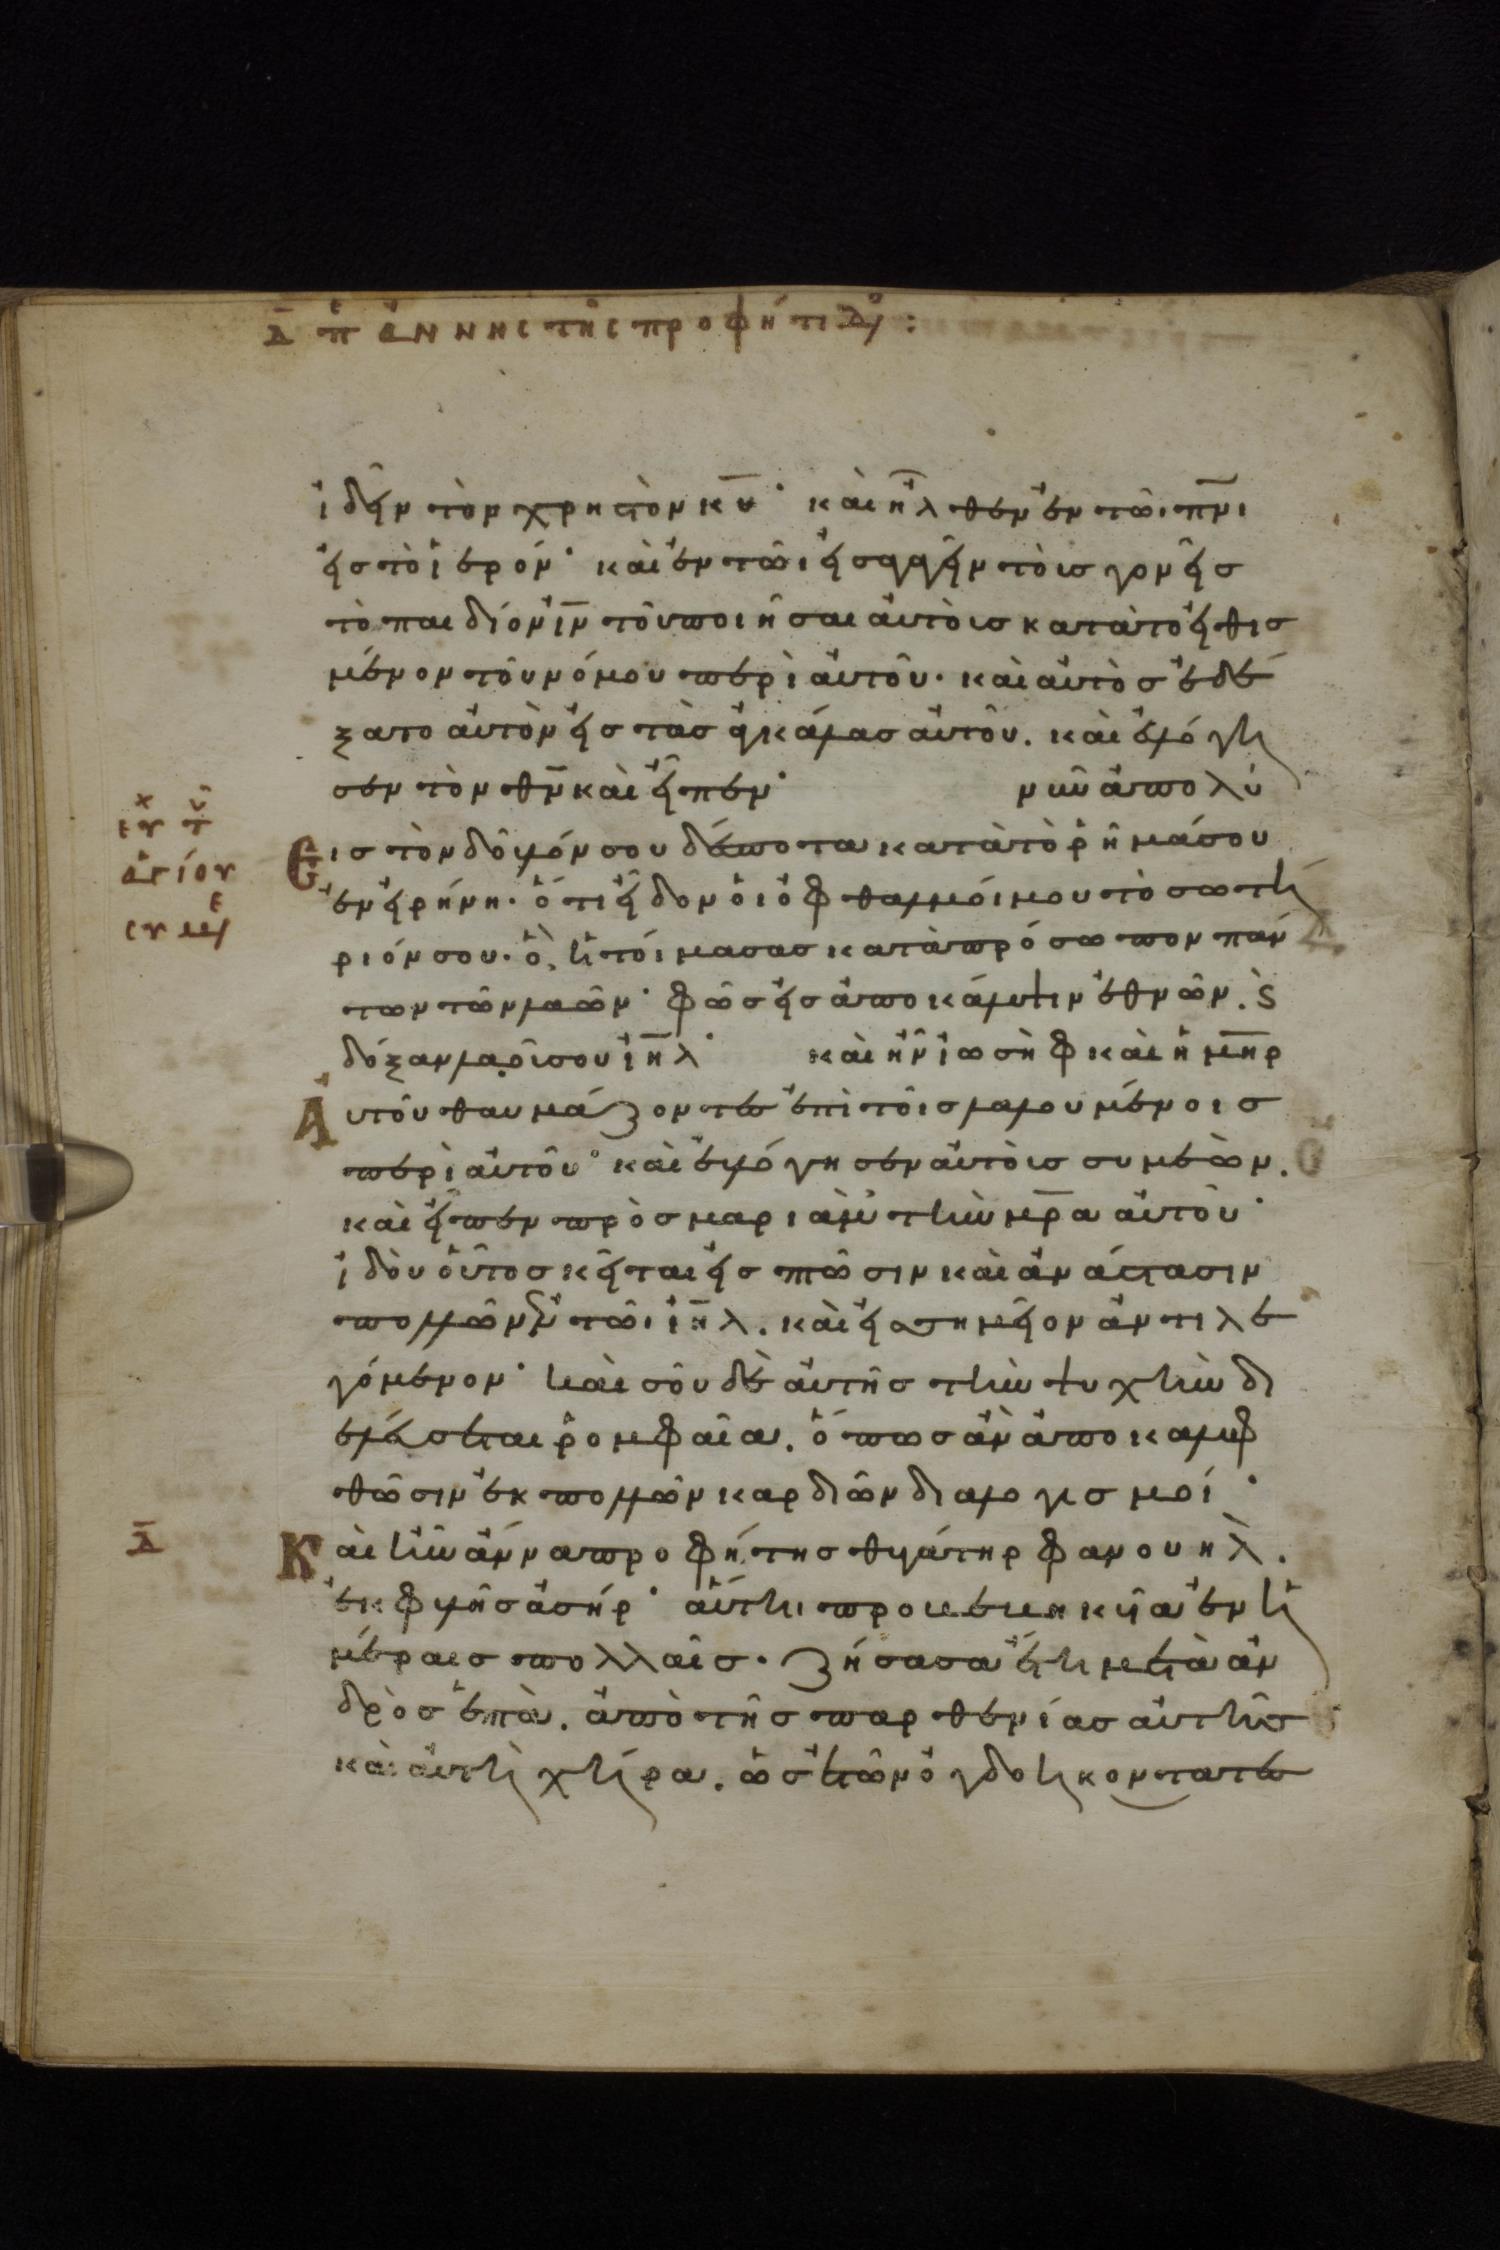 Δ̄ πε Ἄννης τῆς προφήτιδ:
ἰδεῖν τὸν χρηστὸν κ̅υ̅· καὶ ἦλθεν ἐν τῶι π̅ν̅ι
εἰς τὸ ἱερόν· καὶ ἐν τῶι εἰσαγαγεῖν τοὺς γονεῖς
τὸ παιδίον ι̅ν̅ τοῦ ποιῆσαι αὐτοῖς κατὰ τὸ εἰθισ
μένον τοῦ νόμου περὶ αὐτοῦ· καὶ αὐτὸς ἐδέ
ξατο αὐτὸν εἰς τὰς ἀγκάλας αὐτοῦ. καὶ εὐλόγη
σεν τὸν θ̅ν̅ καὶ εἶπεν· νῦν ἀπολύ
εις τὸν δοῦλόν σου δέσποτα κατὰ τὸ ῥῆμά σου
ἐν εἰρήνη· ὅτι εἶδον οἱ ὀφθαλμοί μου τὸ σωτή
ριόν σου· ὃ ἡτοίμασας κατὰ πρόσωπον πάν
των τῶν λαῶν· φῶς εἰς ἀποκάλυψιν ἐθνῶν. ϗ
δόξαν λαοῦ σου ι̅η̅λ· καὶ ἦν ἰωσὴφ καὶ ἡ μ̅η̅ρ
αὐτοῦ θαυμάζοντες ἐπὶ τοῖς λαλουμένοις
περὶ αὐτοῦ· καὶ εὐλόγησεν αὐτοὺς συμεών.
καὶ εἶπεν πρὸς μαριὰμ τὴν μ̅ρ̅α αὐτοῦ·
ἰδοὺ οὗτος κεῖται εἰς πτῶσιν καὶ ἀνάστασιν
πολλῶν ἐν τῶι ι̅η̅λ. καὶ εἰς σημεῖον ἀντιλε
γόμενον· καὶ σοῦ δὲ αὐτῆς τὴν ψυχὴν δι
ελεύσεται ῥομφαία. ὅπως ἂν ἀποκαλυφ
θῶσιν ἐκ πολλῶν καρδιῶν διαλογισμοί·
Δ̄
Καὶ ἦν ἄννα προφήτης θυγάτηρ φανουὴλ.
ἐκ φυλῆς ἀσήρ· αὕτη προβεβηκυῖα ἐν ἡ
μέραις πολλαῖς. ζήσασα ἔτη μετὰ ἀν
δρὸς ἑπτὰ. ἀπὸ τῆς παρθενίας αὐτῆς
καὶ αὐτὴ χήρα. ὡς ἐτῶν ὀγδοήκοντα τε